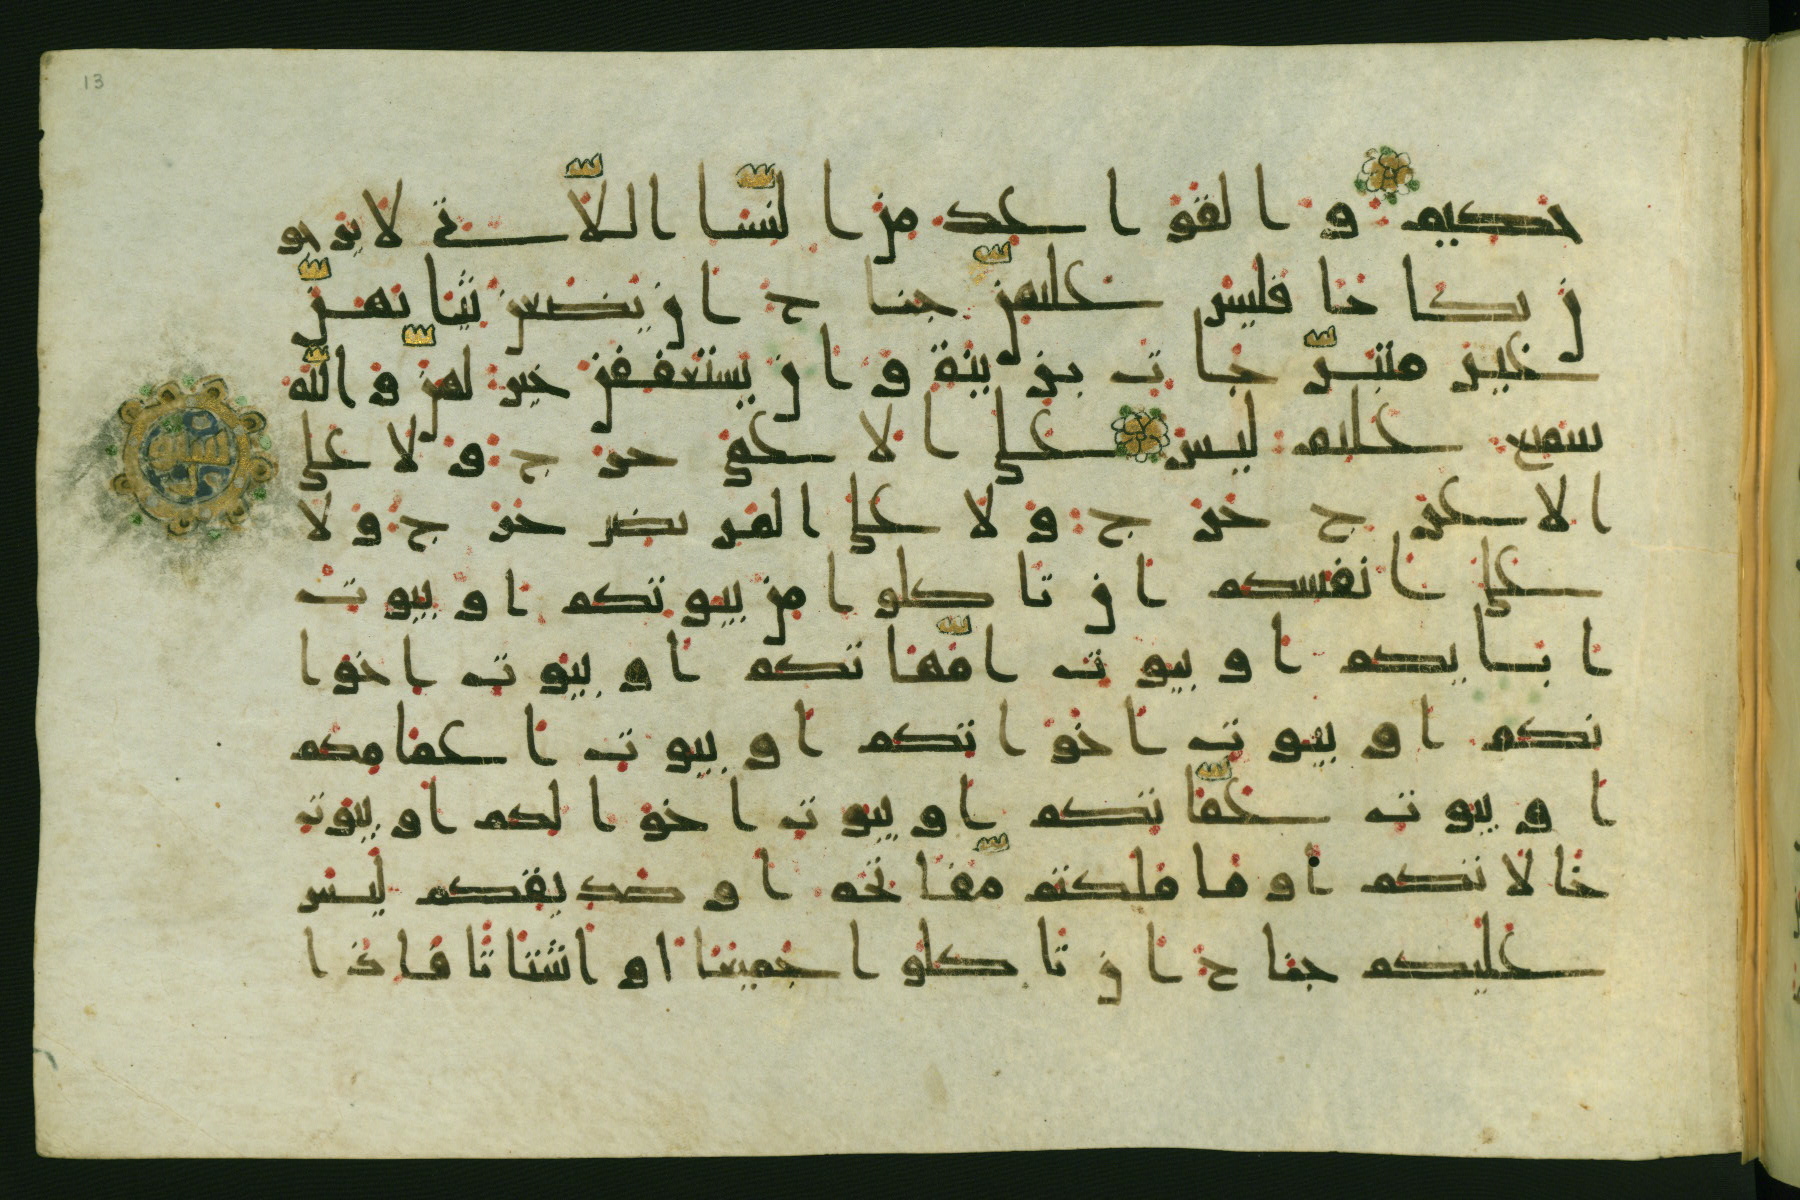 13
حكيم والقواعد من النسا اللاتي لا يرجو
ن نكاحا فليس عليهنّ جناح ان يضعن ثيابهنّ
غير متبرّجات بزينة وان يستعففن خير لهنّ والله
سميع عليم ليس على الاعمى حرج ولا على
الاعرج حرج ولا على المريض حرج ولا
على انفسكم ان تاكلوا من بيوتكم او بيوت
ابايكم او بيوت امّهاتكم او بيوت اخوا
نكم او بيوت اخواتكم او بيوت اعمامكم
او بيوت عمّاتكم او بيوت اخوالكم او بيوت
خالاتكم او ما ملكتم مّفاتحه او صديقكم ليس
عليكم جناح ان تاكلوا جميعا او اشتاتا فاذا